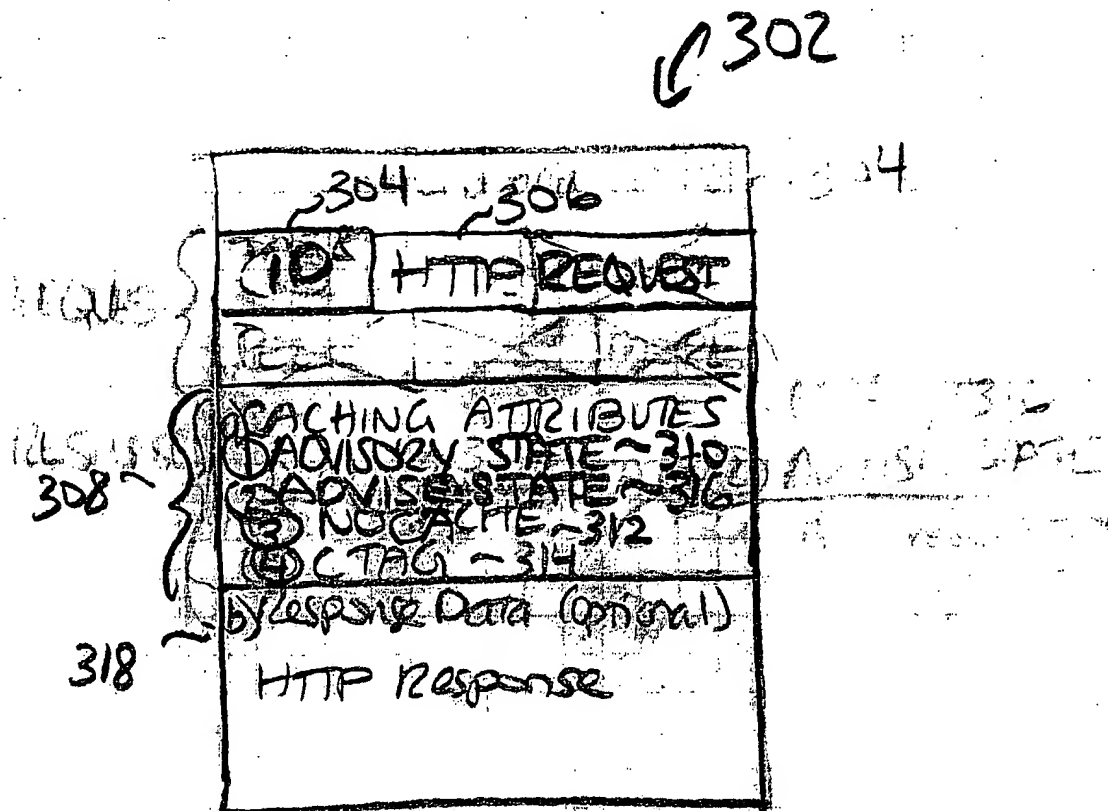 302
304 306 4
CID HTTP REQUEST
a) CACHING ATTRIBUTES
1) ADVISORY STATE ~310
2) ADVISE STATE ~316
3) NOCACHE ~312
4) CTAG ~314
308
b) Response Data (optional)
318
HTTP Response